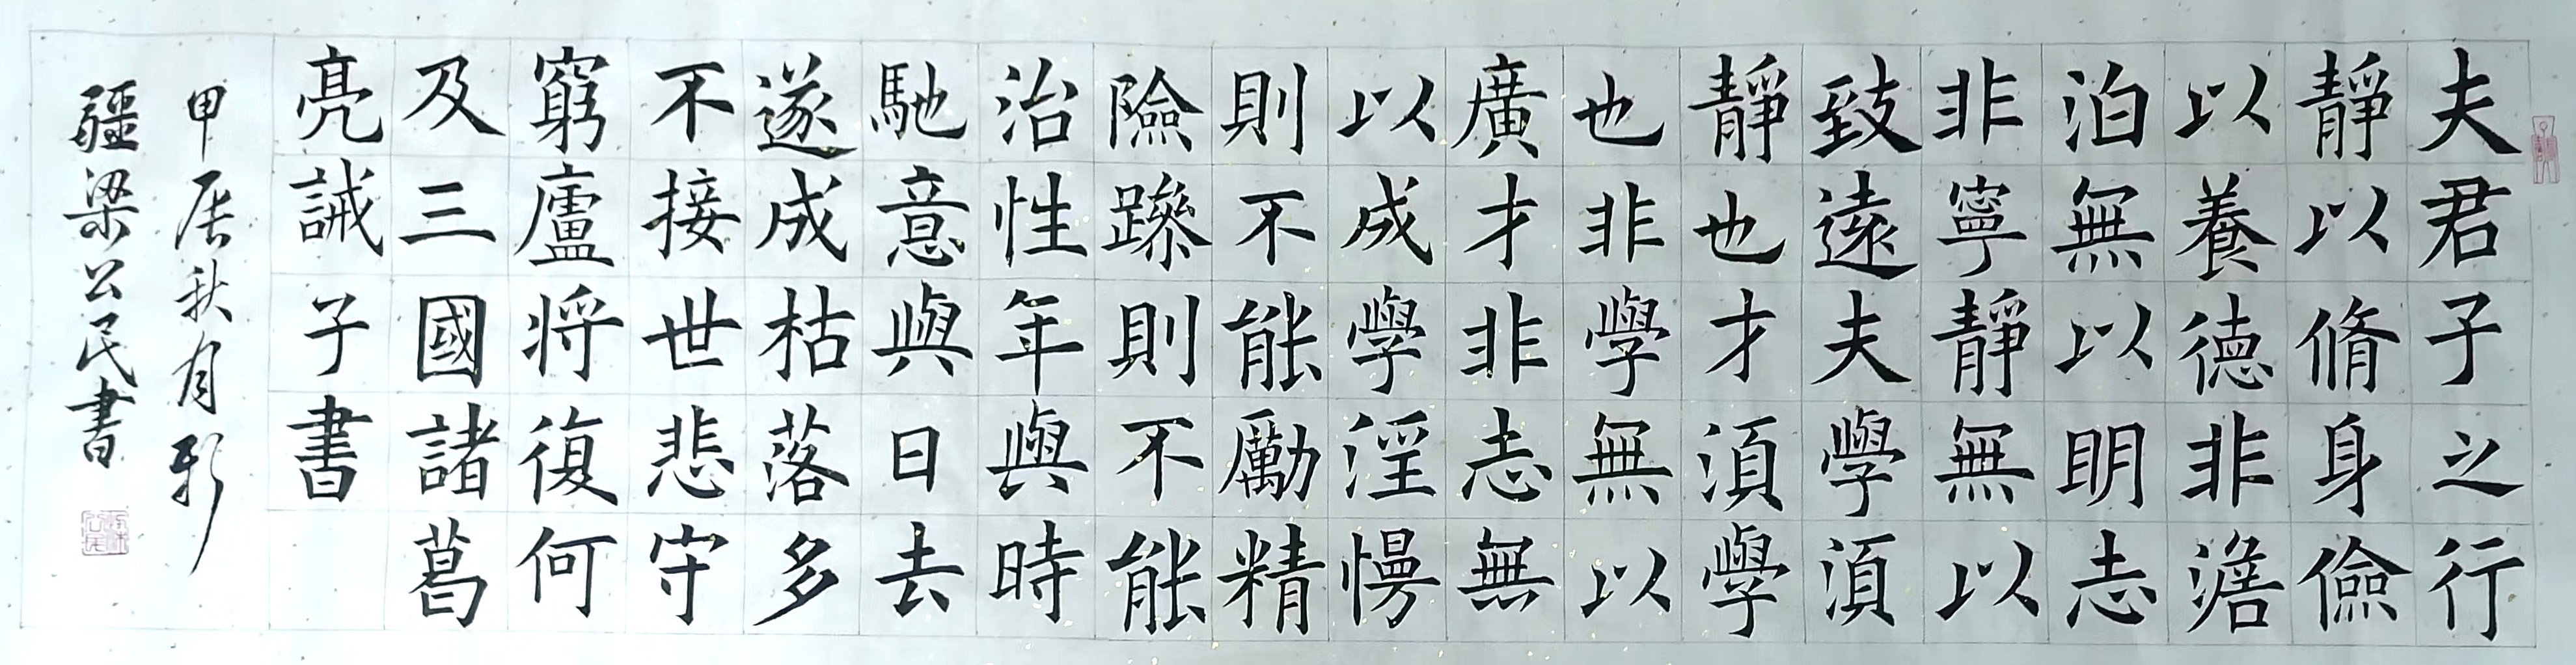 夫君子之行
靜以脩身儉
以養德非澹
泊無以明志
非寧靜無以
致遠夫學須
靜也才須學
也非學無以
廣才非志無
以成學淫慢
則不能勵精
險躁則不能
治性年與時
馳意與日去
遂成枯落多
不接世悲守
窮廬將復何
及三國諸葛
亮誡子書
甲辰秋月新
疆梁公民書